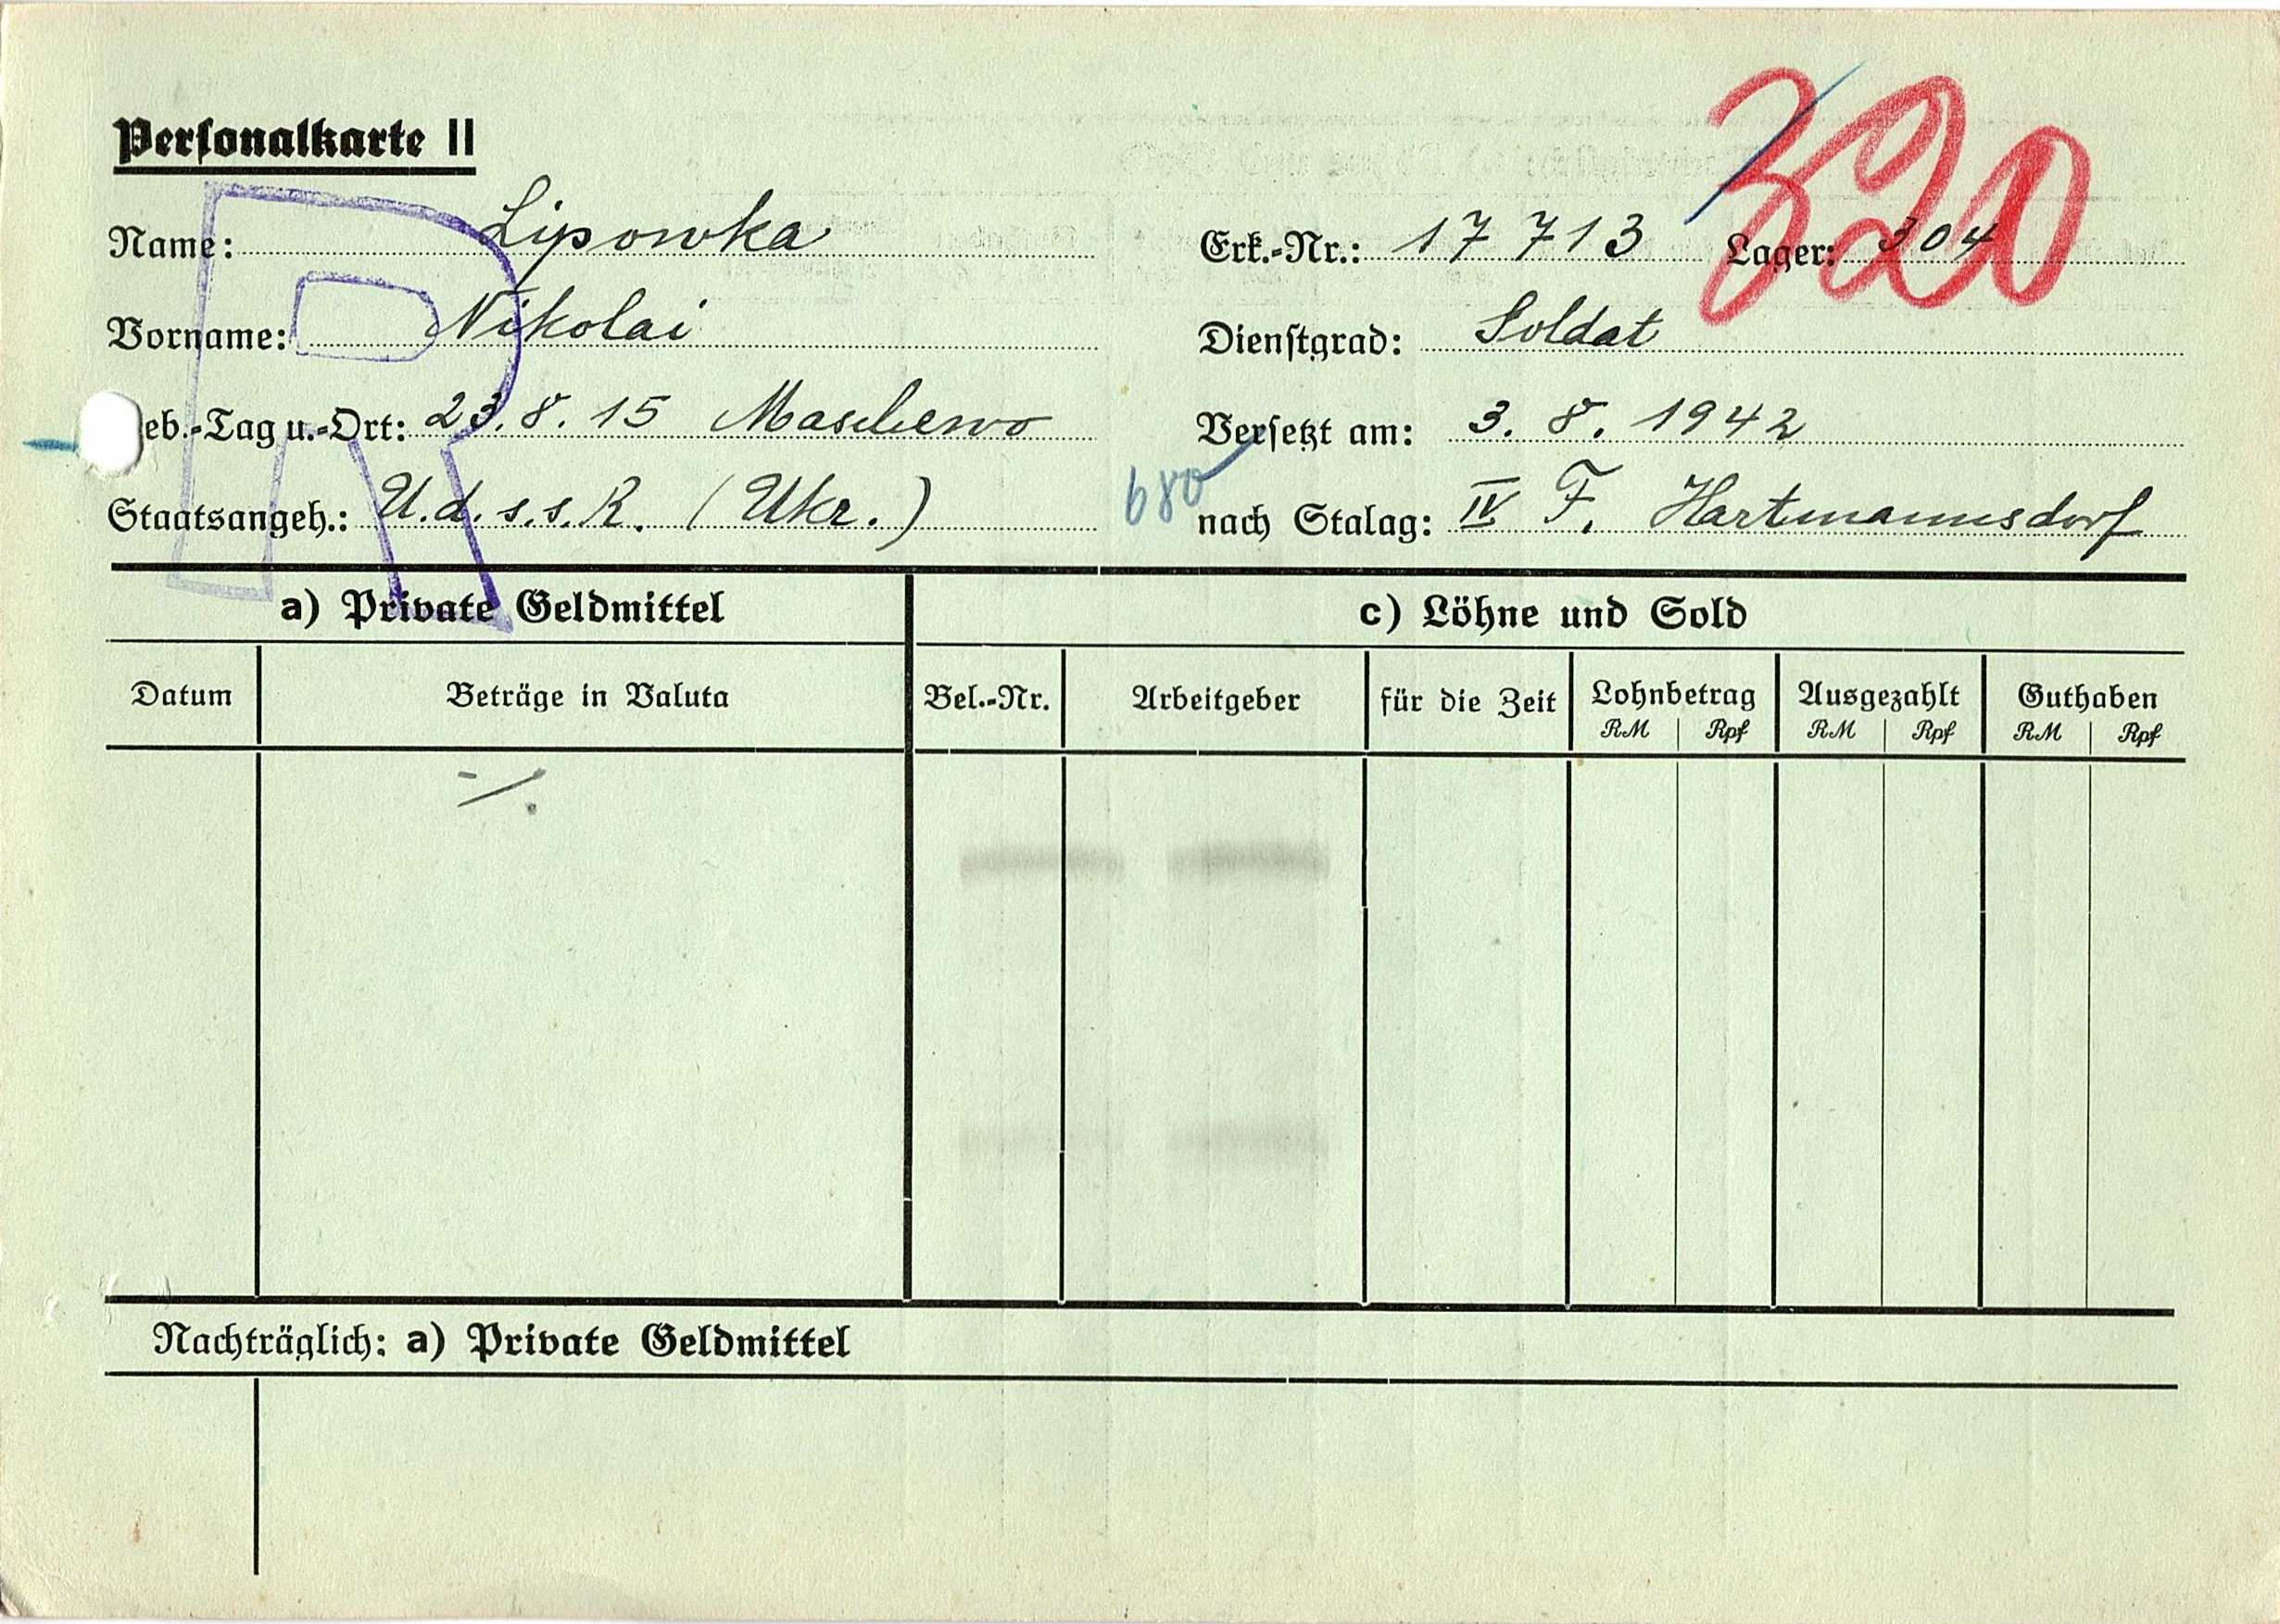 320
Personalkarte II
R
Name: Lipowka
Erk.-Nr.: 17 713 Lager: 304
Vorname: Nikolai
Dienstgrad: Soldat
eb.-Tag u.-Ort: 23.8.15 Maschewo
Versetzt am: 3. 8. 1942
Staatsangeh.: U.d.s.s.R. (Ukr.)
680
nach Stalag: IV F. Hartmannsdorf
a) Private Geldmittel
c) Löhne und Sold
Datum Beträge in Valuta Bel.-Nr. Arbeitgeber für die Zeit Lohnbetrag Ausgezahlt Guthaben
RM Rpf RM Rpf RM Rpf
-/.
Nachträglich: a) Private Geldmittel